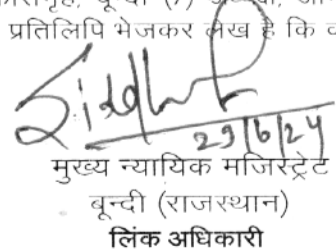 प्रतिलिपि भेजकर लेख है कि
29/6/24
मुख्य न्यायिक मजिस्ट्रेट
बून्दी (राजस्थान)
लिंक अधिकारी